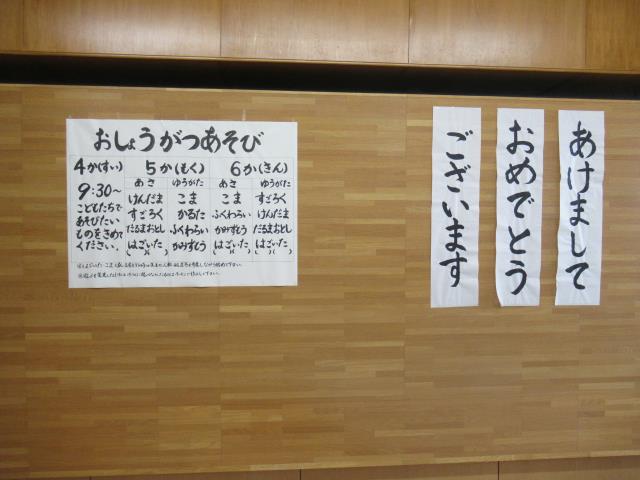 おしょうがつあそび
4か(すい) 5か(もく) 6か(きん)
9:30〜
こどもたちで
あそびたい
ものをきめて
ください。
あさ ゆうがた あさ ゆうがた
けんだま こま こま すごろく
すごろく かるた ふくわらい けんだま
だるまおとし ふくわらい かみずもう だるまおとし
はごいた かみずもう はごいた はごいた
あけまして
おめでとう
ございます